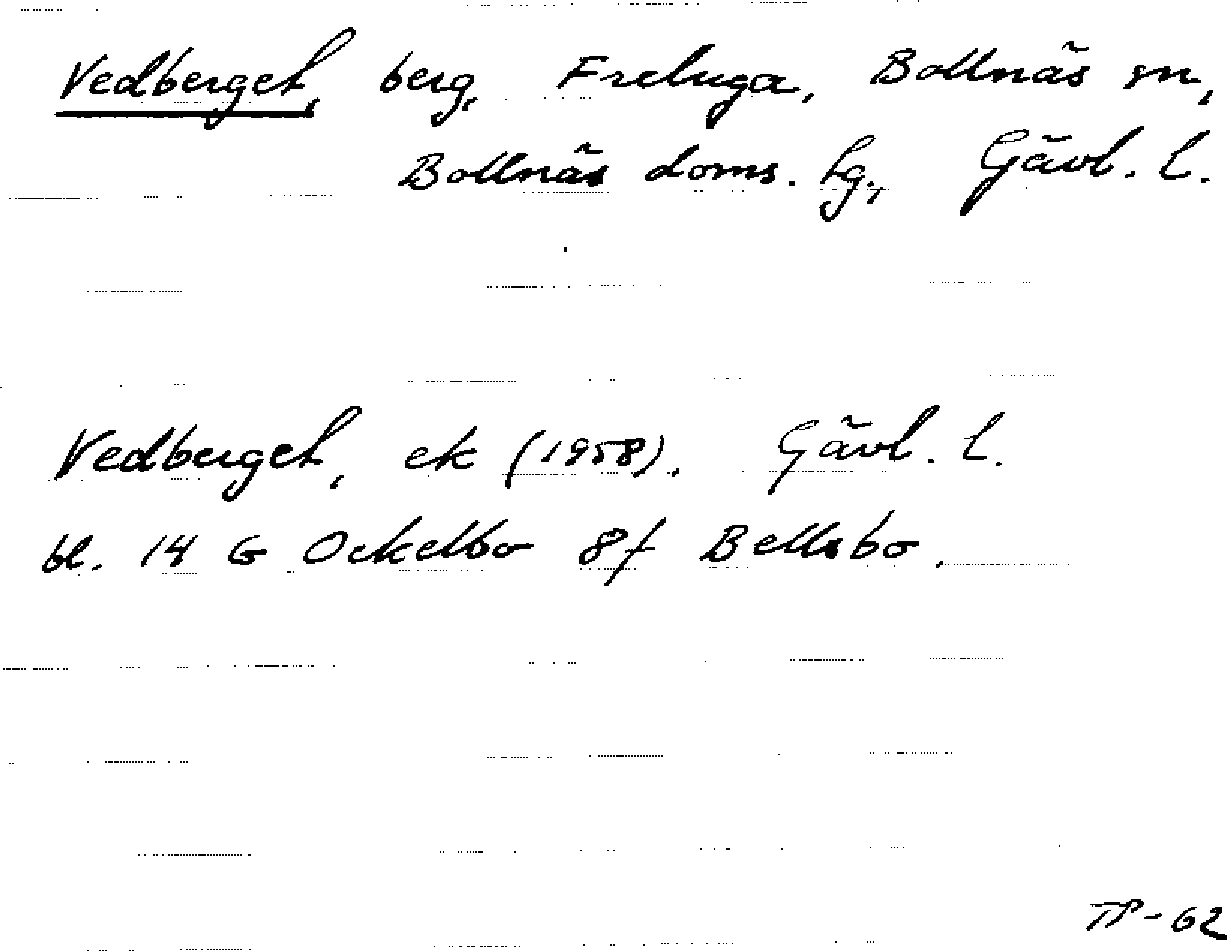 Vedberget, berg, Freluga, Bollnäs sn,
Bollnäs doms. hg., Gävl. l.
Vedberget, ek (1958). Gävl. l.
bl. 14 G Ockelbo 8f Bellsbo.
TP-62